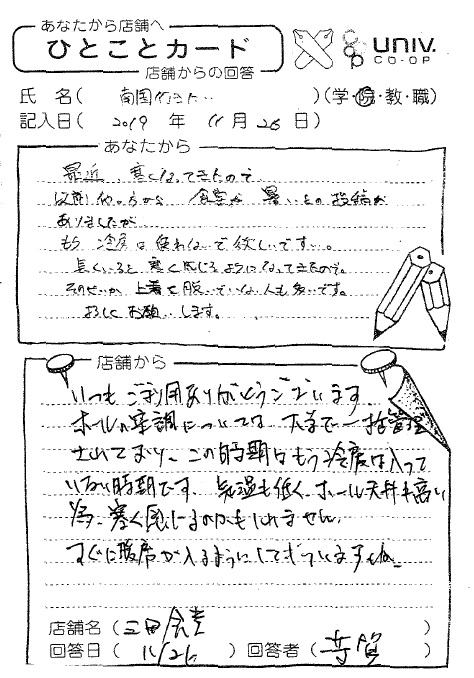 あなたから店舗へ
ひとことカード
店舗からの回答
UNIV.
CO-OP
氏 名( 南国行きたい )(学・院・教・職)
記入日( 2019 年 11月 26 日)
あなたから
最近、寒くなってきたので
以前 他の方から 食堂が 暑いとの 投稿が
ありましたが、
もう 冷房は使わないで欲しいです。
長くいると 寒く感じるようになってきたので。
そのせいか 上着を脱いでいない人も多いです。
よろしくお願いします。
店舗から
いつもご利用ありがとうございます。
ホールの空調については 大学で一括管理
されており、この時期はもう冷房は入って
いない時期です。気温も低く、ホール天井も高い
為、寒く感じるのかもしれません。
すぐに暖房が入るようにして
店舗名( 三田食堂 )
回答日( 11/26 ) 回答者( )